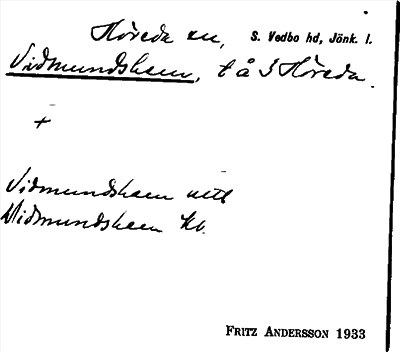 Höreda sn, S. Vedbo hd, Jönk. l.
Vidmundshem, t å 3 Höreda.
+
Vidmundshem utt
Vidmundshem Kb.
FRITZ ANDERSSON 1933